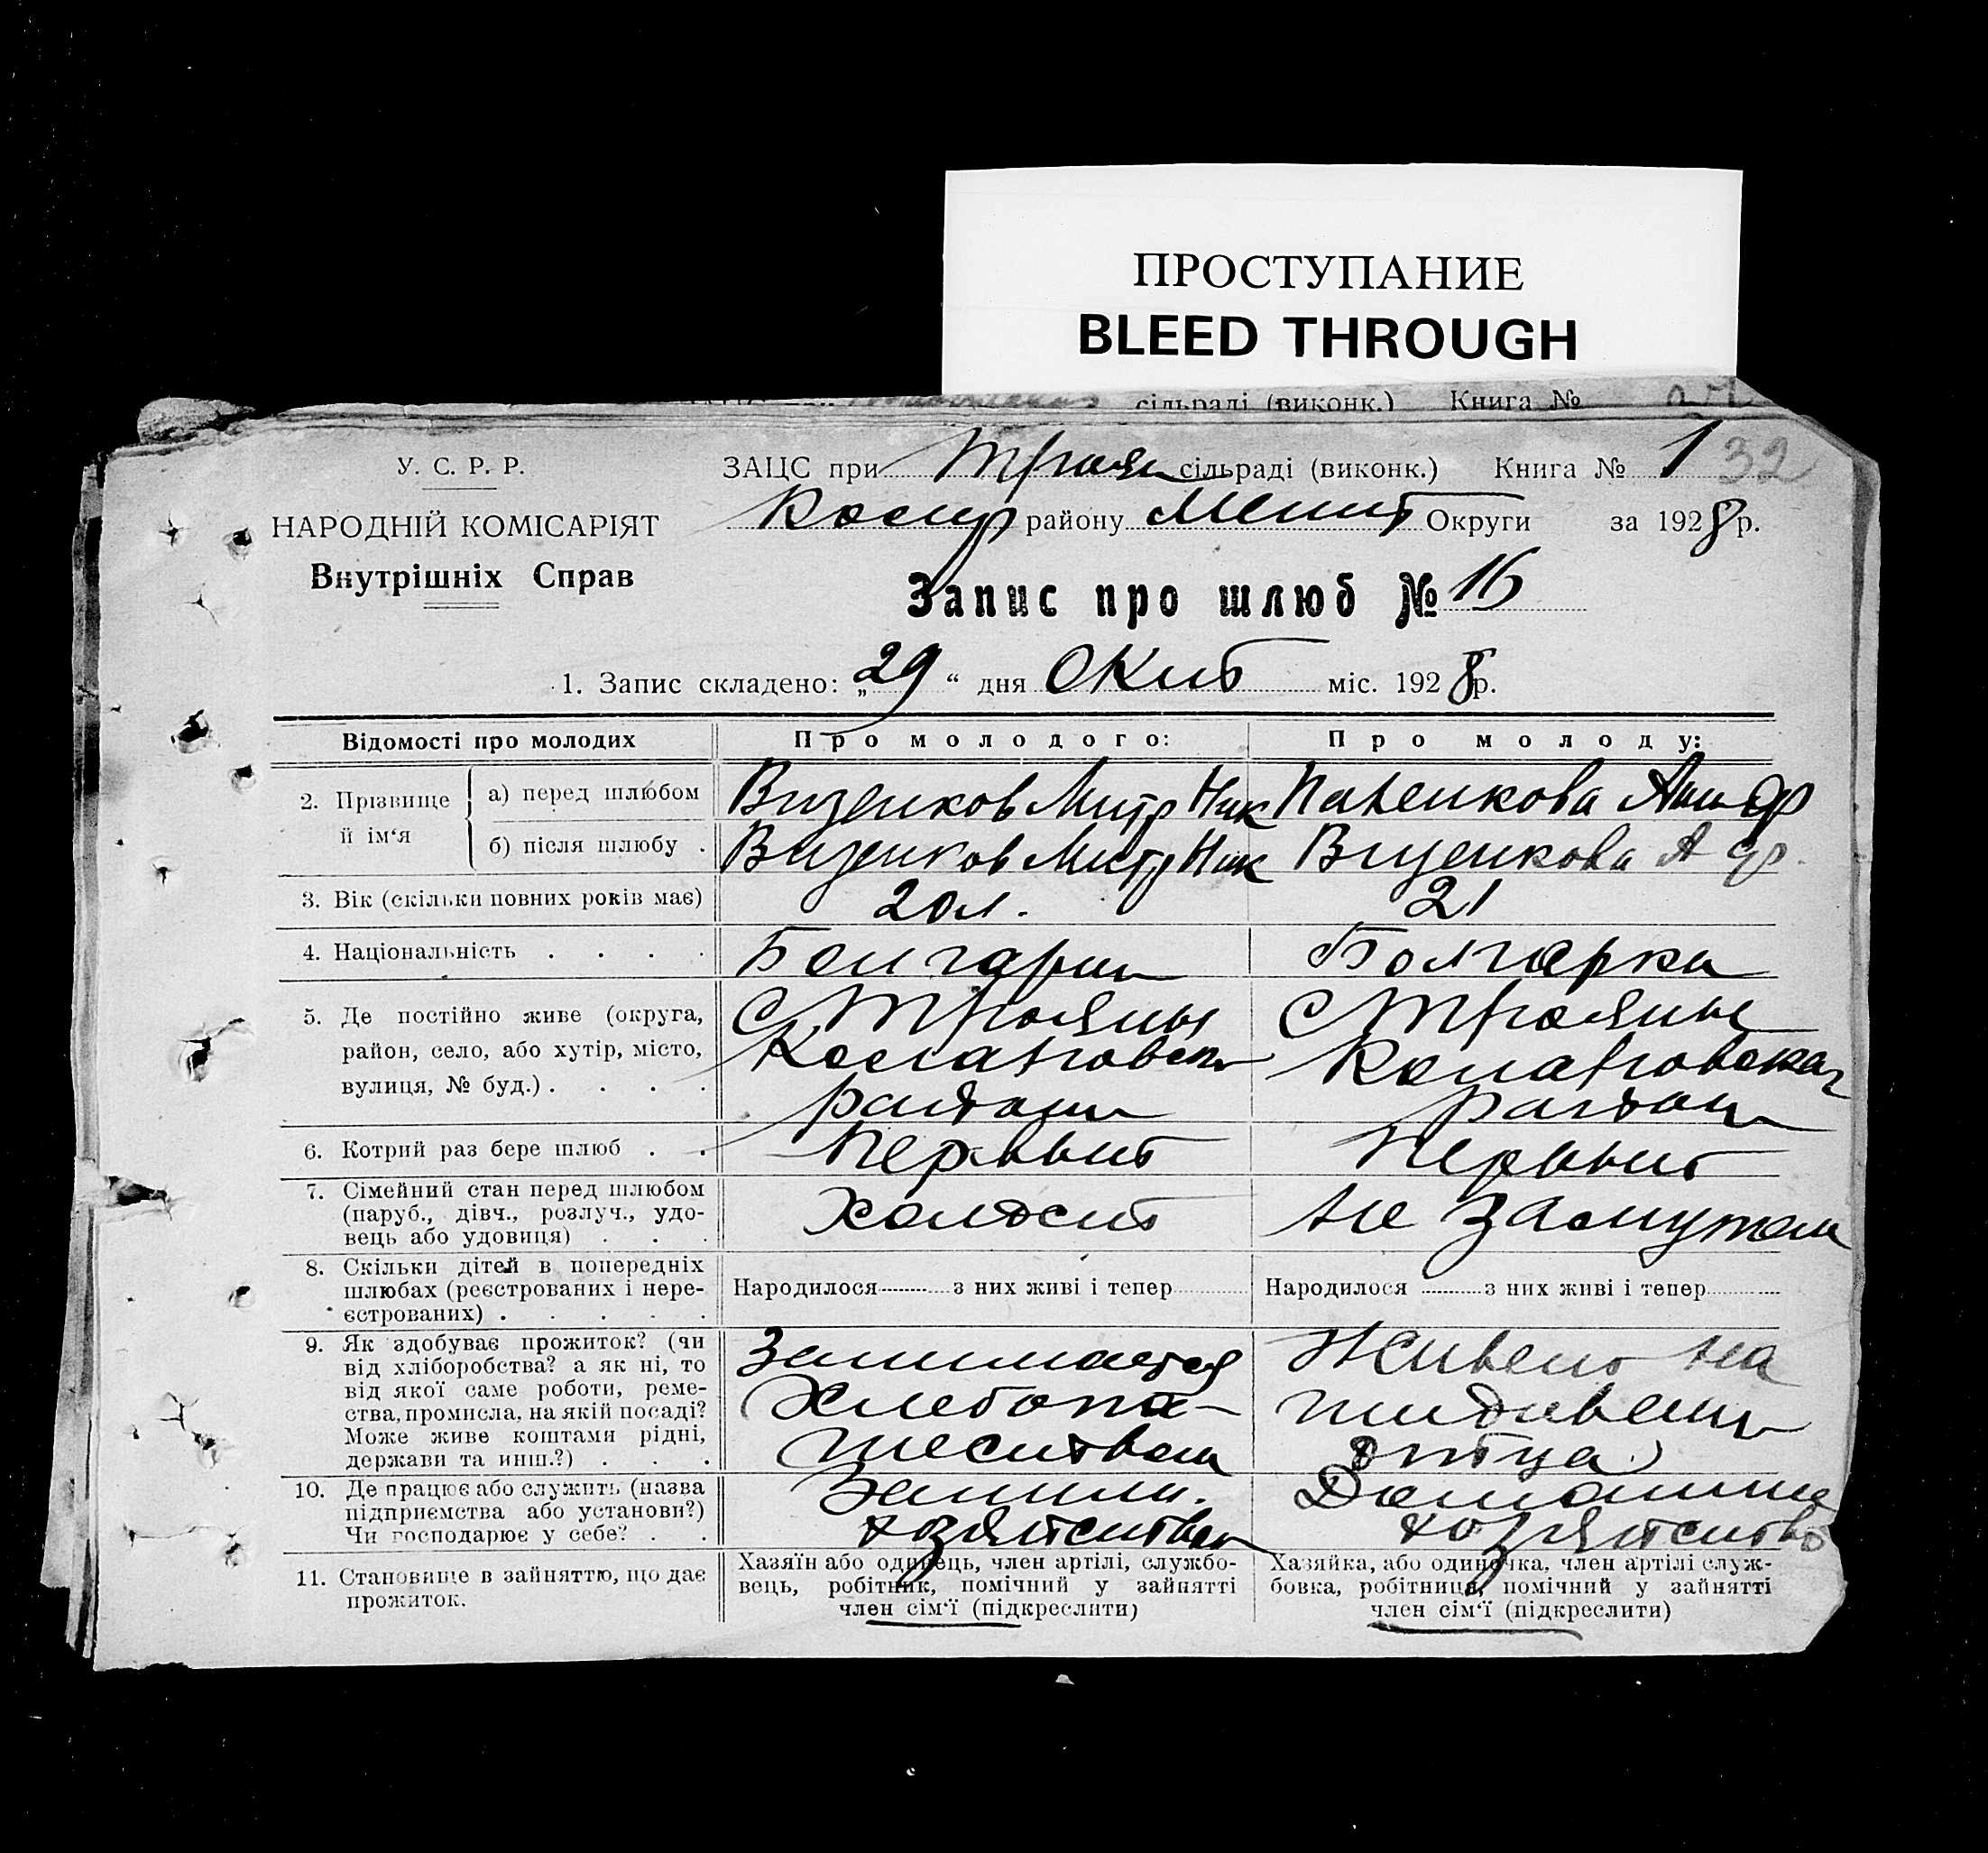 ПРОСТУПАНИЕ
BLEED THROUGH
сільраді (виконк.) Книга №
У. С. Р. Р.
ЗАЦС при Троян сільраді (виконк.) Книга № 1 32
НАРОДНІЙ КОМІСАРІЯТ
району Мелит Округи за 1928 р.
Внутрішніх Справ
Запис про шлюб № 16
1. Запис складено: „29“ дня Окт міс. 1928 р.
Відомості про молодих Про молодого: Про молоду:
2. Прізвище й ім'я
а) перед шлюбом Визенков Митр Ник
б) після шлюбу . Визенков Митр Ник Визенкова А
3. Вік (скільки повних років має) 20 л. 21
4. Національність . . . . Болгарин Болгарка
5. Де постійно живе (округа, С Трояны С Трояны
район, село, або хутір, місто,
вулиця, № буд.) . . . . района района
6. Котрий раз бере шлюб . . Первый Первый
7. Сімейний стан перед шлюбом
(паруб., дівч., розлуч., удо- Холост не замужем
вець або удовиця) . . .
8. Скільки дітей в попередніх
шлюбах (реєстрованих і нере- Народилося з них живі і тепер Народилося з них живі і тепер
єстрованих) . . . . .
9. Як здобуває прожиток? (чи Занимается Живет на
від хліборобства? а як ні, то
від якої саме роботи, реме- Хлебопа- иждивении
ства, промисла, на якій посаді?
Може живе коштами рідні, шеством отца
держави та инш.?) . . .
10. Де працює або служить (назва Домашнее
підприємства або установи?)
Чи господарює у себе? . . хозяйством хозяйство
11. Становище в зайняттю, що дає
прожиток.
Хазяїн або одинець, член артілі, службо-
вець, робітник, помічний у зайнятті
член сім'ї (підкреслити)
Хазяйка, або одиночка, член артілі служ-
бовка, робітниця, помічний у зайнятті
член сім'ї (підкреслити)